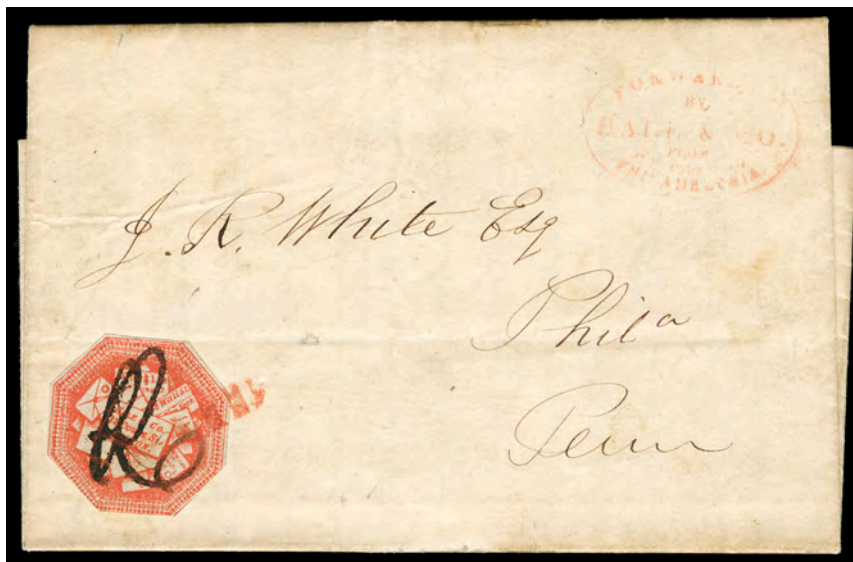 FORWARD
BY
& CO.
FROM
PHILADELPHIA
J. R. White Esq
Phil a
Penn
Co.
St.